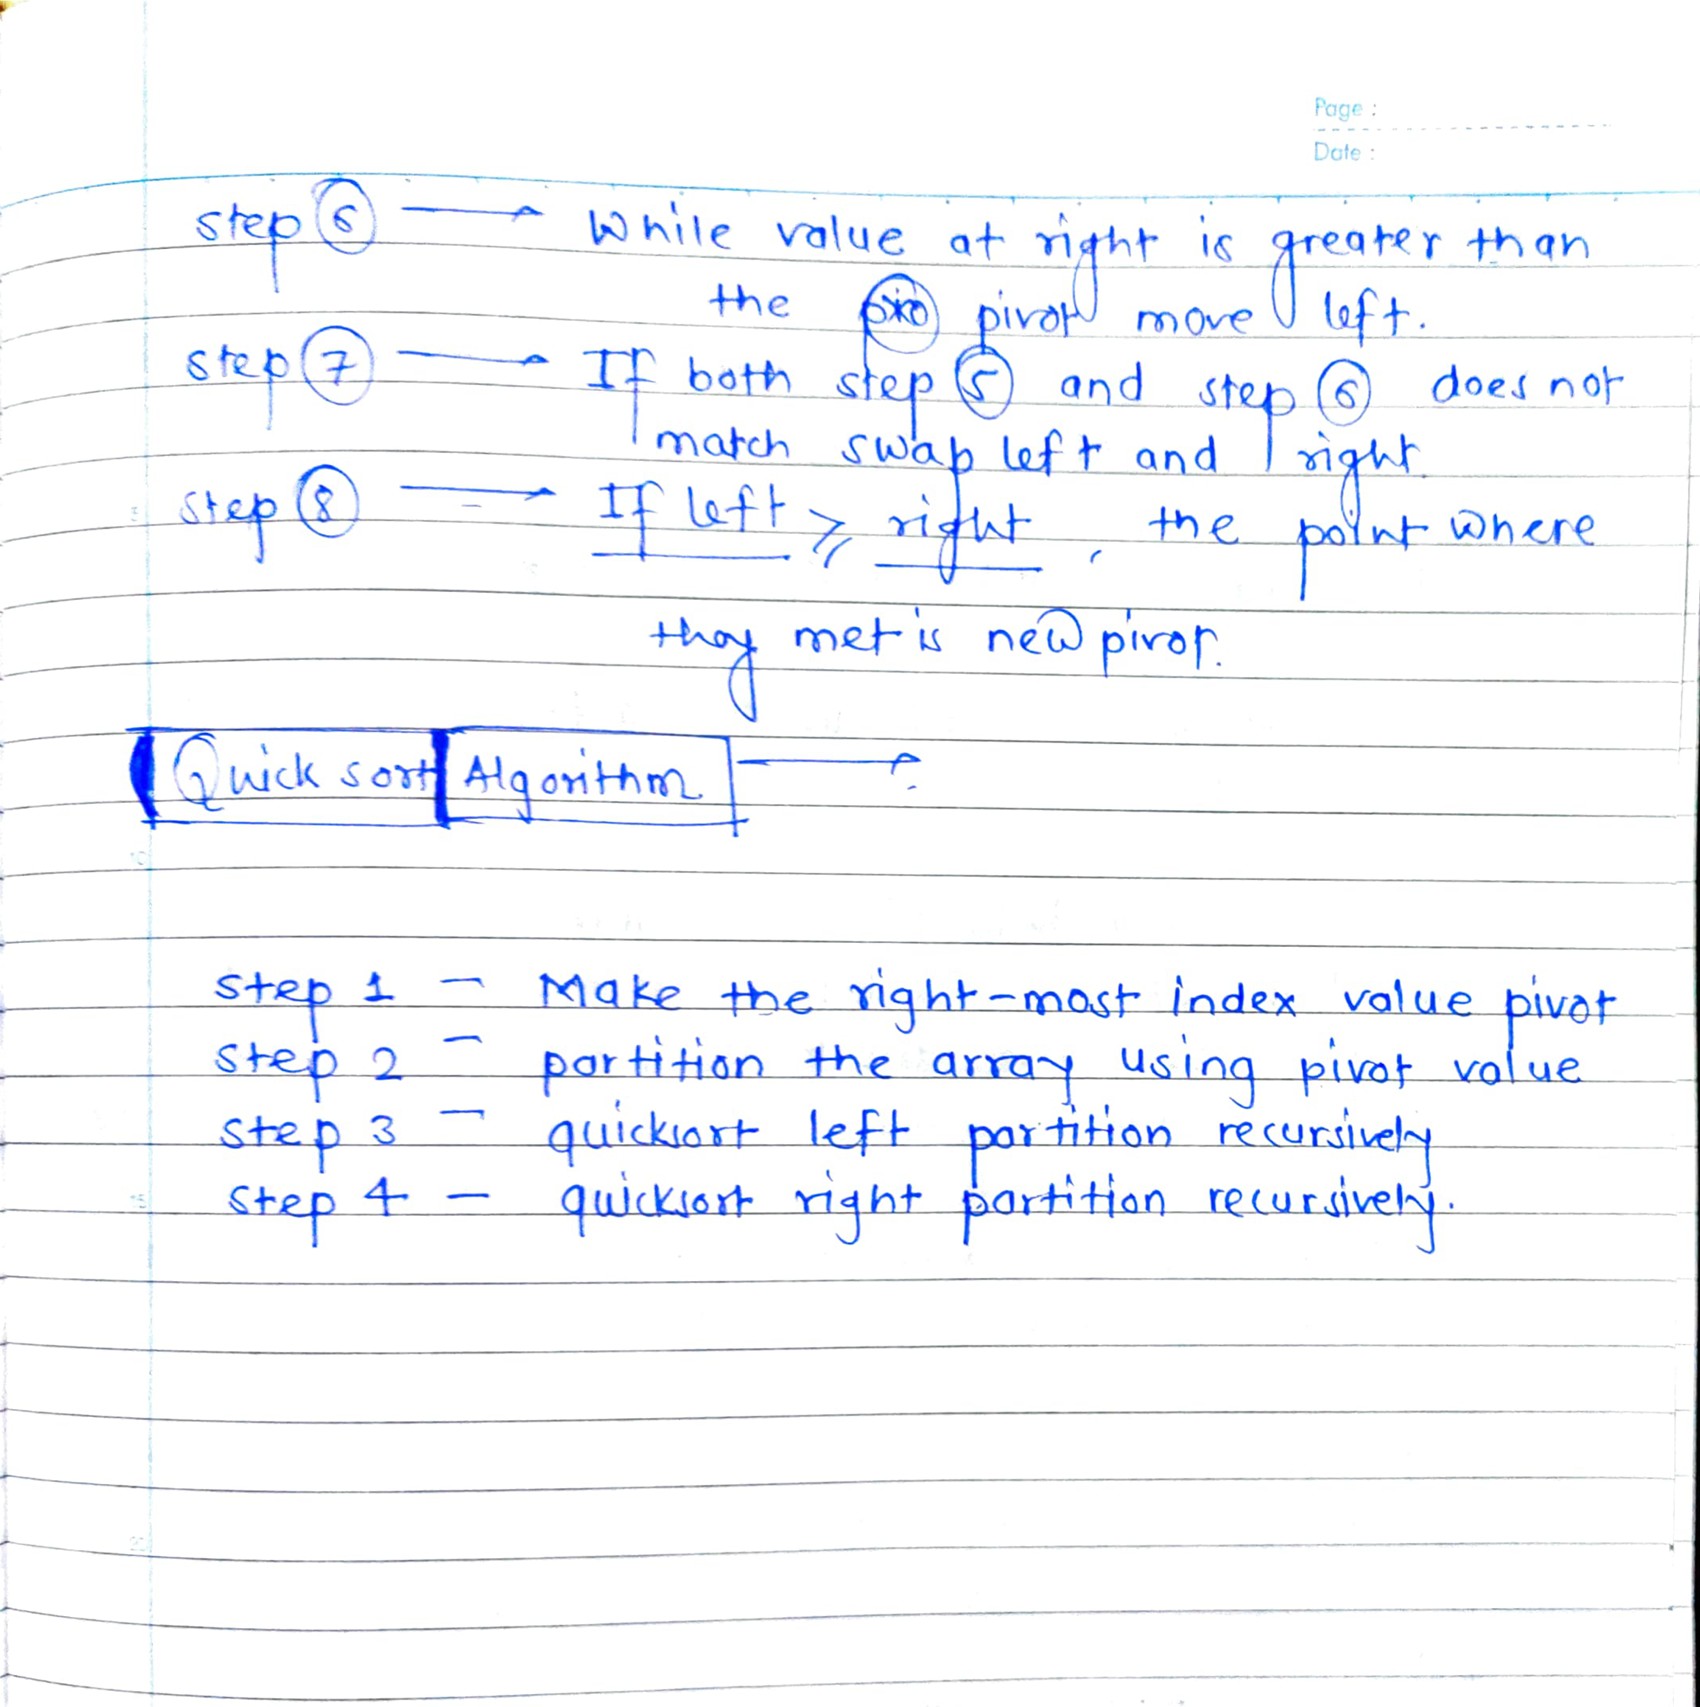 Page :
Date :
step 6 → While value at right is greater than
the pivot move left.
step 7 → If both step 5 and step 6 does not
match swap left and right.
step 8 → If left ≥ right, the point where
they met is new pivot.
Quick sort Algorithm →
step 1 - Make the right-most index value pivot
step 2 - partition the array using pivot value
step 3 - quicksort left partition recursively
step 4 - quicksort right partition recursively.